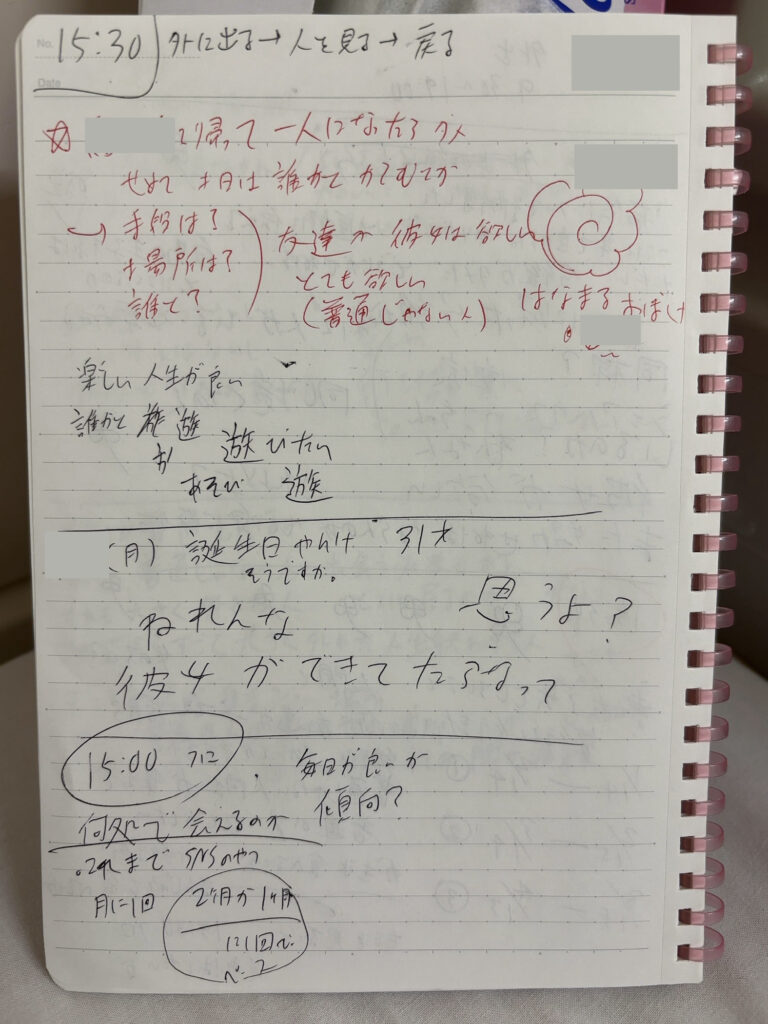 No.
Date
15:30 外に出る→人を見る→戻る
帰って 一人になったらダメ
せめて 才日は 誰かと
→ 手段は?
場所は?
誰と?
友達か 彼女は欲しい
とても欲しい
(普通じゃない人)
はなまる おばけ
楽しい 人生が良い
誰かと 遊
遊びたい
あそび 遊
(月) 誕生日やんけ 31才
そうですか。
ねれんな
思うよ?
彼女ができてたらなって
15:00
毎日が良いか
傾向?
何処で会えるのか
これまで SNSのやつ
月に1回
2ヶ月か1ヶ月
に1回で